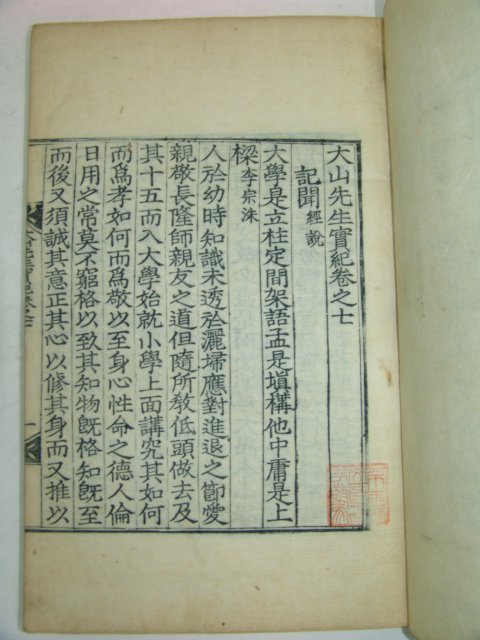 大山先生實紀卷之七
記聞 經說
大學是立柱定間架語孟是塡構他中庸是上
樑 李宗洙
人於幼時知識未透於灑埽應對進退之節愛
親敬長隆師親友之道但隨所敎低頭做去及
其十五而入大學始就小學上面講究其如何
而爲孝如何而爲敬以至身心性命之德人倫
日用之常莫不窮格以致其知物旣格知旣至
而後又須誠其意正其心以修其身而又推以